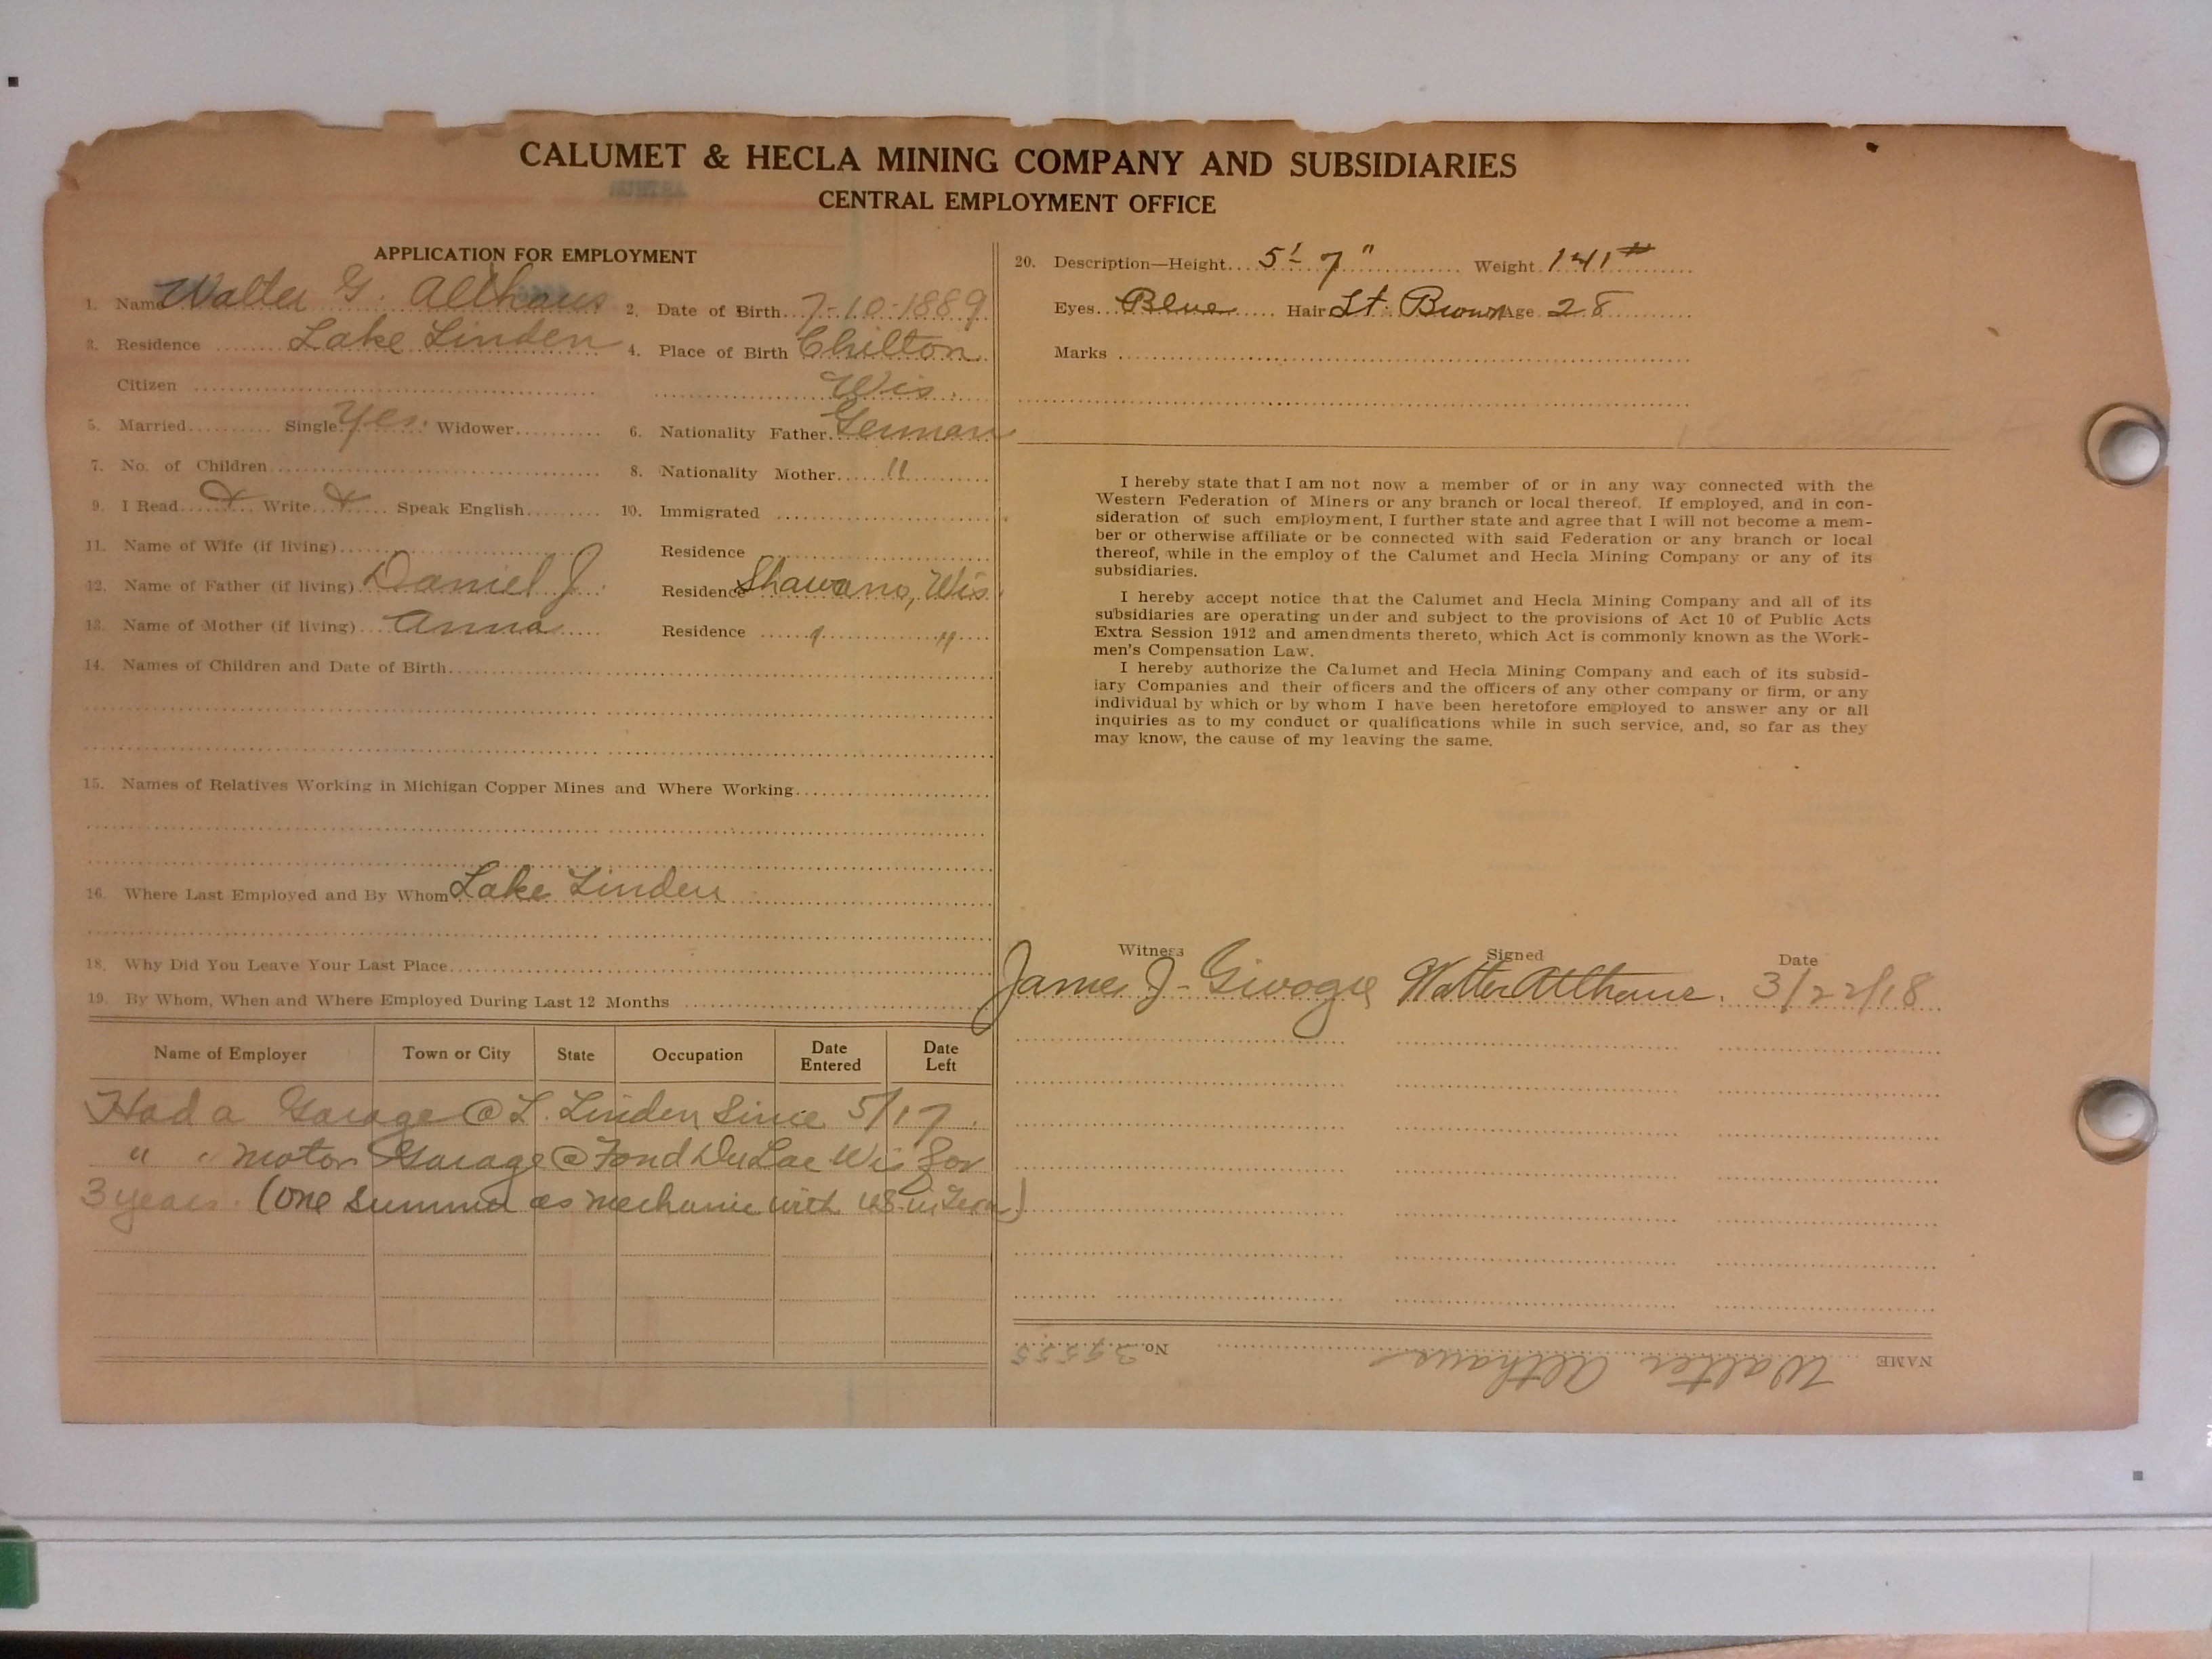 CALUMET & HECLA MINING COMPANY AND SUBSIDIARIES
CENTRAL EMPLOYMENT OFFICE
APPLICATION FOR EMPLOYMENT
1. Name Walter G. Althaus 2. Date of Birth 7-10-1889
3. Residence Lake Linden 4. Place of Birth Chilton
Citizen Wis.
5. Married Single Yes. Widower 6. Nationality Father German
7. No. of Children 8. Nationality Mother "
9. I Read X Write X Speak English 10. Immigrated
11. Name of Wife (if living) Residence
12. Name of Father (if living) Daniel J. Residence Shawano, Wis
13. Name of Mother (if living) Anna Residence " "
14. Names of Children and Date of Birth
15. Names of Relatives Working in Michigan Copper Mines and Where Working
16. Where Last Employed and By Whom Lake Linden
18. Why Did You Leave Your Last Place
19. By Whom, When and Where Employed During Last 12 Months
Name of Employer Town or City State Occupation Date Entered Date Left
Had a Garage @ L. Linden Since 5/17.
" " Motor Garage @ Fond Du Lac Wis for
3 years. (One Summer as mechanic with
20. Description—Height 5' 7" Weight 141 #
Eyes Blue Hair Lt. Brown Age 28
Marks
I hereby state that I am not now a member of or in any way connected with the
Western Federation of Miners or any branch or local thereof. If employed, and in con-
sideration of such employment, I further state and agree that I will not become a mem-
ber or otherwise affiliate or be connected with said Federation or any branch or local
thereof, while in the employ of the Calumet and Hecla Mining Company or any of its
subsidiaries.
I hereby accept notice that the Calumet and Hecla Mining Company and all of its
subsidiaries are operating under and subject to the provisions of Act 10 of Public Acts
Extra Session 1912 and amendments thereto, which Act is commonly known as the Work-
men's Compensation Law.
I hereby authorize the Calumet and Hecla Mining Company and each of its subsid-
iary Companies and their officers and the officers of any other company or firm, or any
individual by which or by whom I have been heretofore employed to answer any or all
inquiries as to my conduct or qualifications while in such service, and, so far as they
may know, the cause of my leaving the same.
Witness Signed Date
James J. Walter Althaus. 3/22/18
NAME Walter Althaus No.